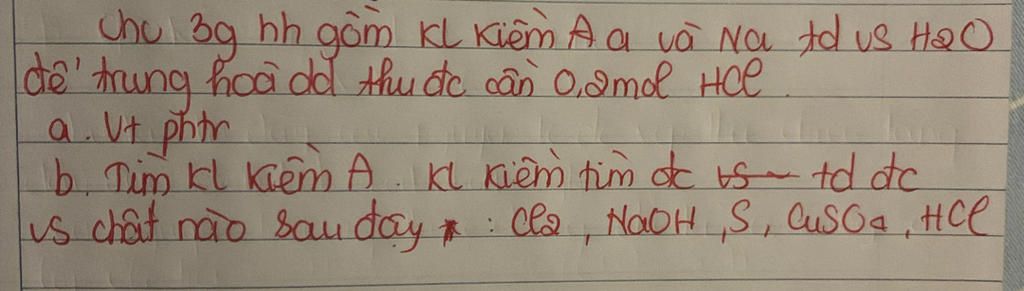 Chc 3g hh gồm KL kiềm A a và Na td vs H2O
để trung hoà dd thu đc cần 0,2mol HCl.
a. Vt phtr
b. Tìm kl kiềm A. kl kiềm tìm đc vs td đc
vs chất nào sau đây : Cl2, NaOH, S, CuSO4, HCl